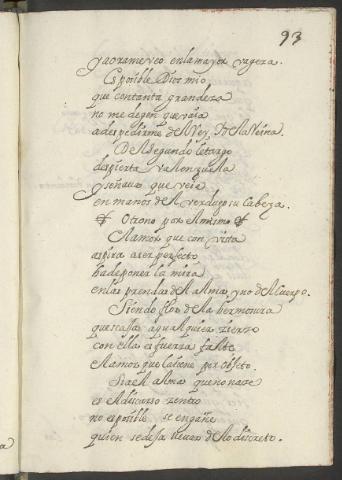 93
y aora me veo en la mayor vageza.
Es posible Dios mio
que con tanta grandeza
no me degen que vaia
a despedirme del Rey, y de la Reina.
Del segundo letargo
despierta Valenzuela
y soñava que veia
en manos del verdugo su Cabeza.
Otro no por el mismo
El amor que con vista
aspira a ser perfecto
ha de poner la mira
en las prendas del Alma y no del Cuerpo.
Siendo flor de la hermosura
que se aja a qualquier zierzo
con ella es fuerza falte
el amor que la tiene por objeto.
Si a el Alma que no naze
es el discurso zentro
no es posible se engañe
quien se deja llevar de lo discreto.